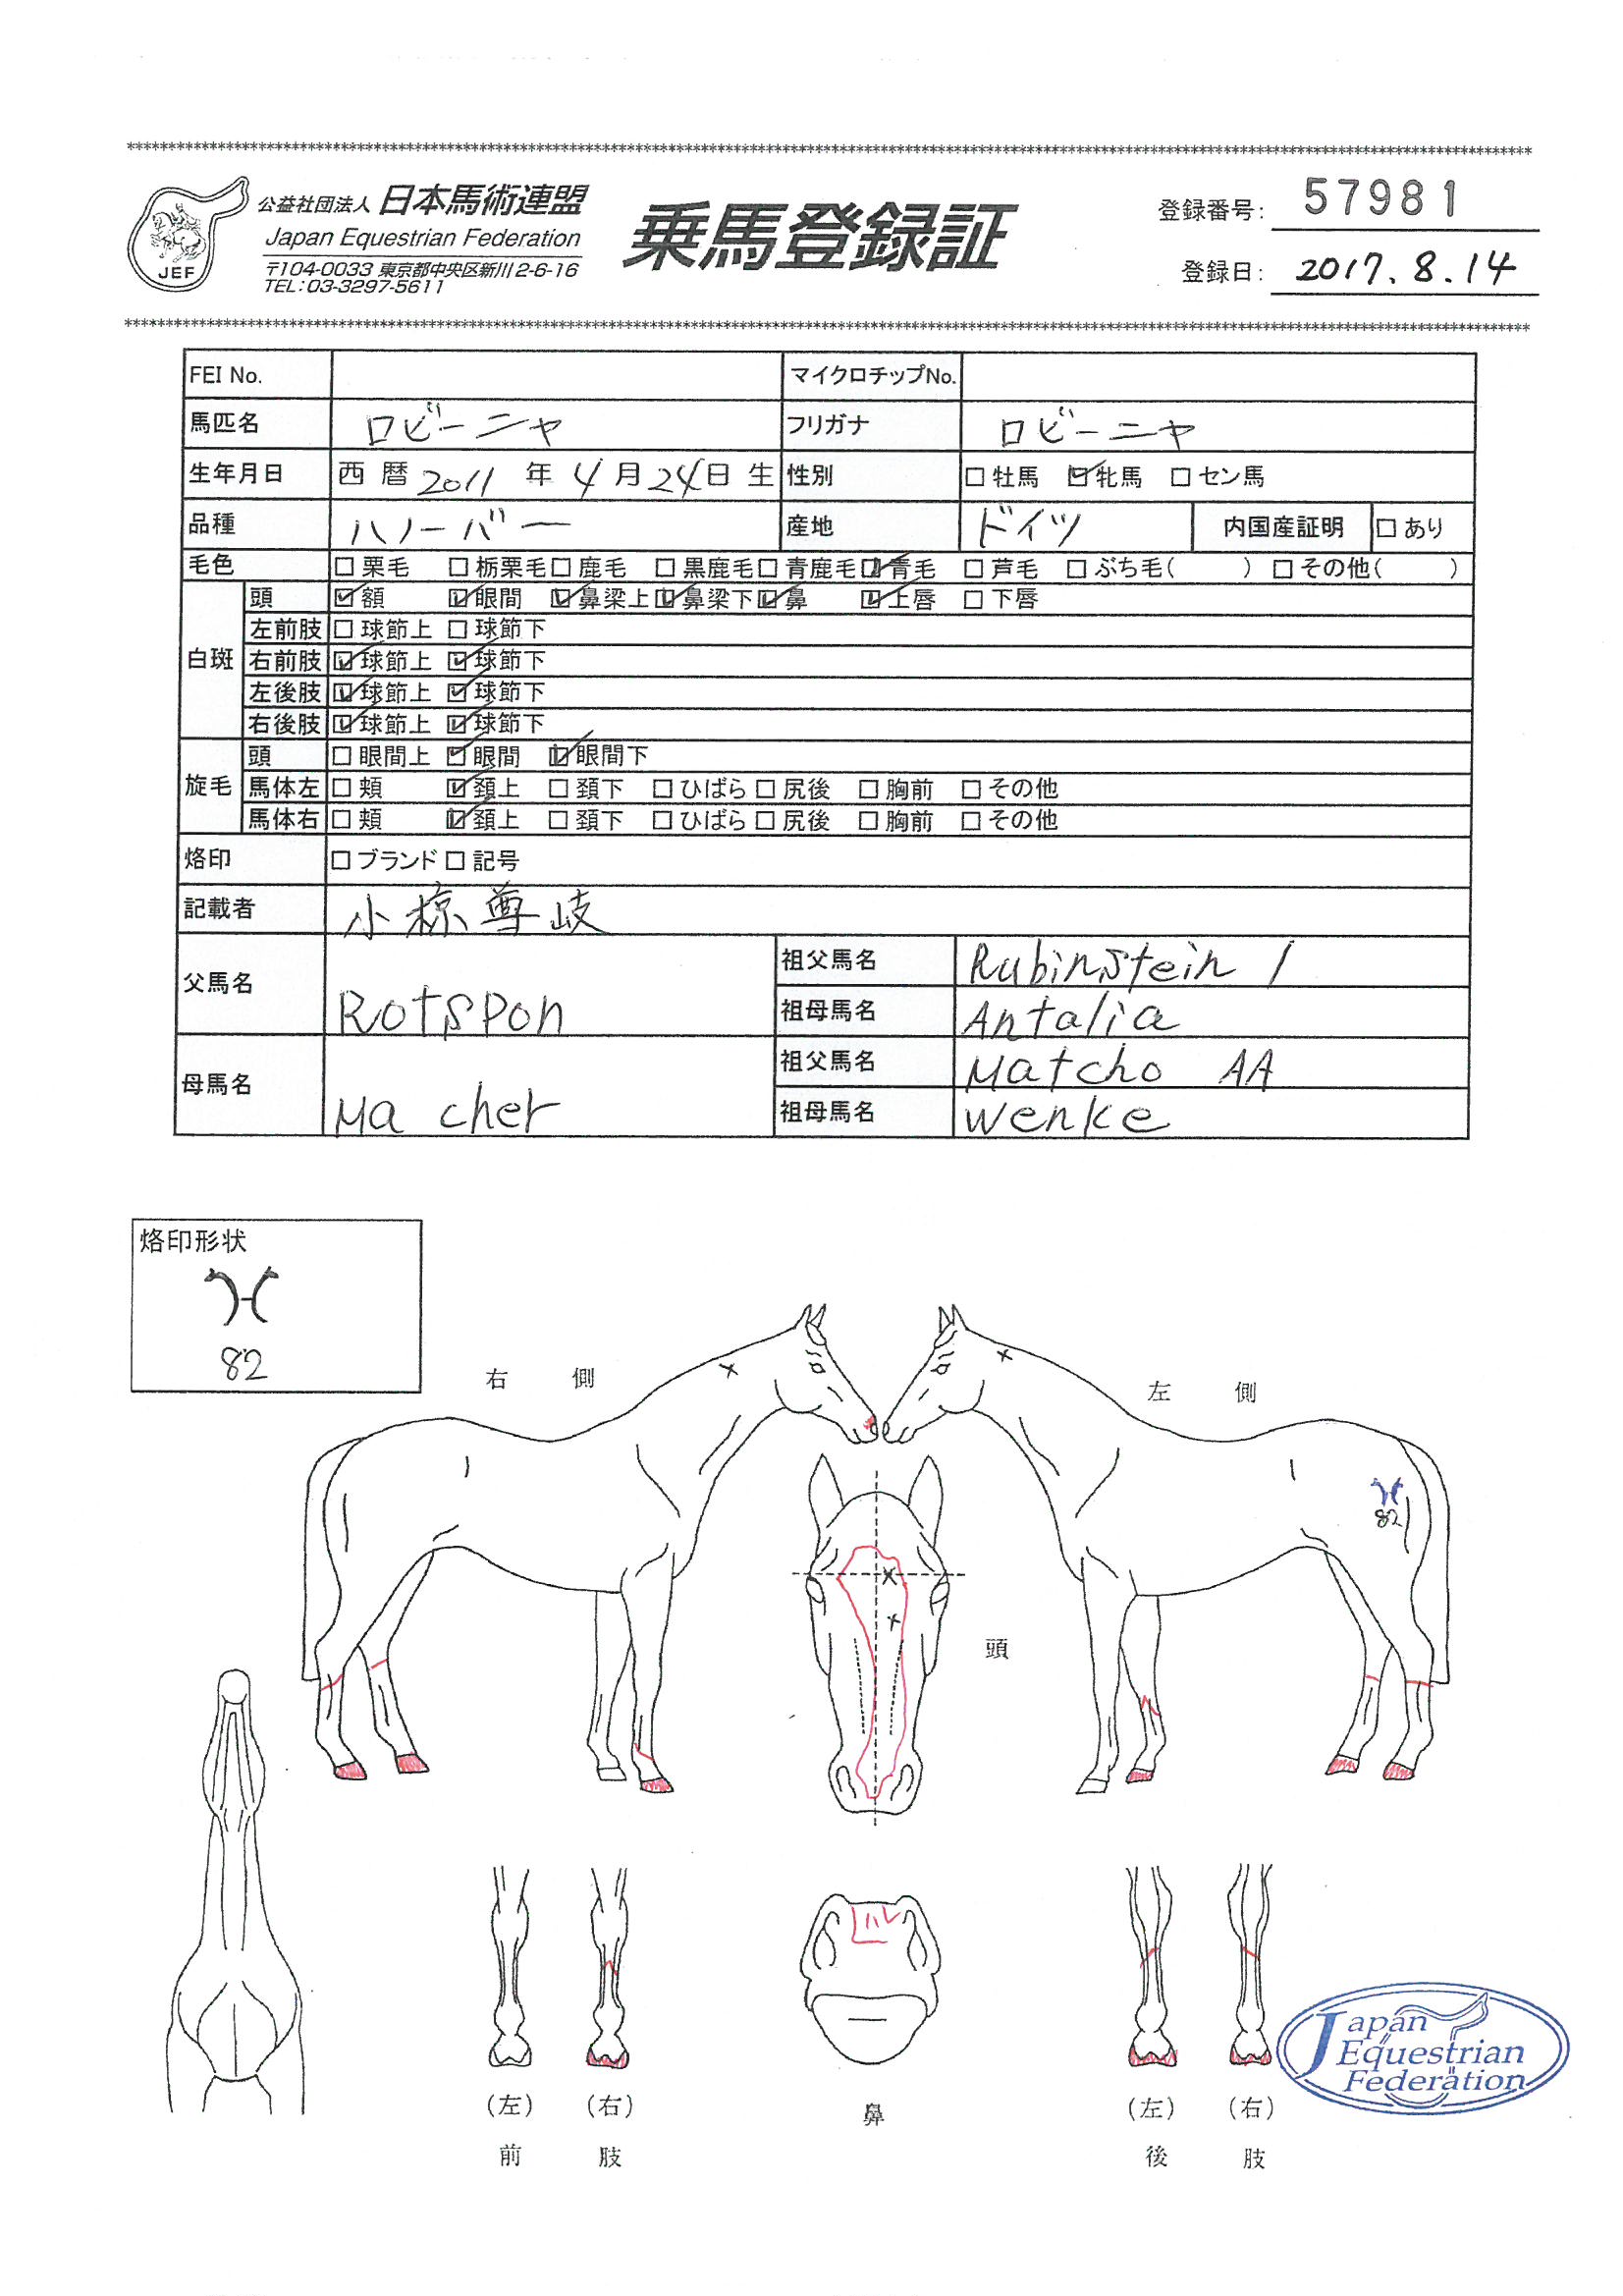 公益社団法人 日本馬術連盟
Japan Equestrian Federation
〒104-0033 東京都中央区新川2-6-16
TEL:03-3297-5611
JEF
乗馬登録証
登録番号: 57981
登録日: 2017.8.14
FEI No. マイクロチップNo.
馬匹名 ロビーニャ フリガナ ロビーニャ
生年月日 西暦 2011 年 4 月 24 日 生 性別 □ 牡馬 ☑ 牝馬 □ セン馬
品種 ハノーバー 産地 ドイツ 内国産証明 □ あり
毛色 □ 栗毛 □ 栃栗毛 □ 鹿毛 □ 黒鹿毛 □ 青鹿毛 ☑ 青毛 □ 芦毛 □ ぶち毛( ) □ その他( )
白斑
頭 ☑ 額 ☑ 眼間 ☑ 鼻梁上 ☑ 鼻梁下 ☑ 鼻 ☑ 上唇 □ 下唇
左前肢 □ 球節上 □ 球節下
右前肢 ☑ 球節上 ☑ 球節下
左後肢 ☑ 球節上 ☑ 球節下
右後肢 ☑ 球節上 ☑ 球節下
旋毛
頭 □ 眼間上 ☑ 眼間 ☑ 眼間下
馬体左 □ 頬 ☑ 頚上 □ 頚下 □ ひばら □ 尻後 □ 胸前 □ その他
馬体右 □ 頬 ☑ 頚上 □ 頚下 □ ひばら □ 尻後 □ 胸前 □ その他
烙印 □ ブランド □ 記号
記載者 小椋尊岐
父馬名 Rotspon
祖父馬名 Rubinstein 1
祖母馬名 Antalia
母馬名 Ma cher
祖父馬名 Matcho AA
祖母馬名 Wenke
烙印形状
82
右 側
左 側
82
頭
(左) (右)
前 肢
鼻
(左) (右)
後 肢
Japan
Equestrian
Federation